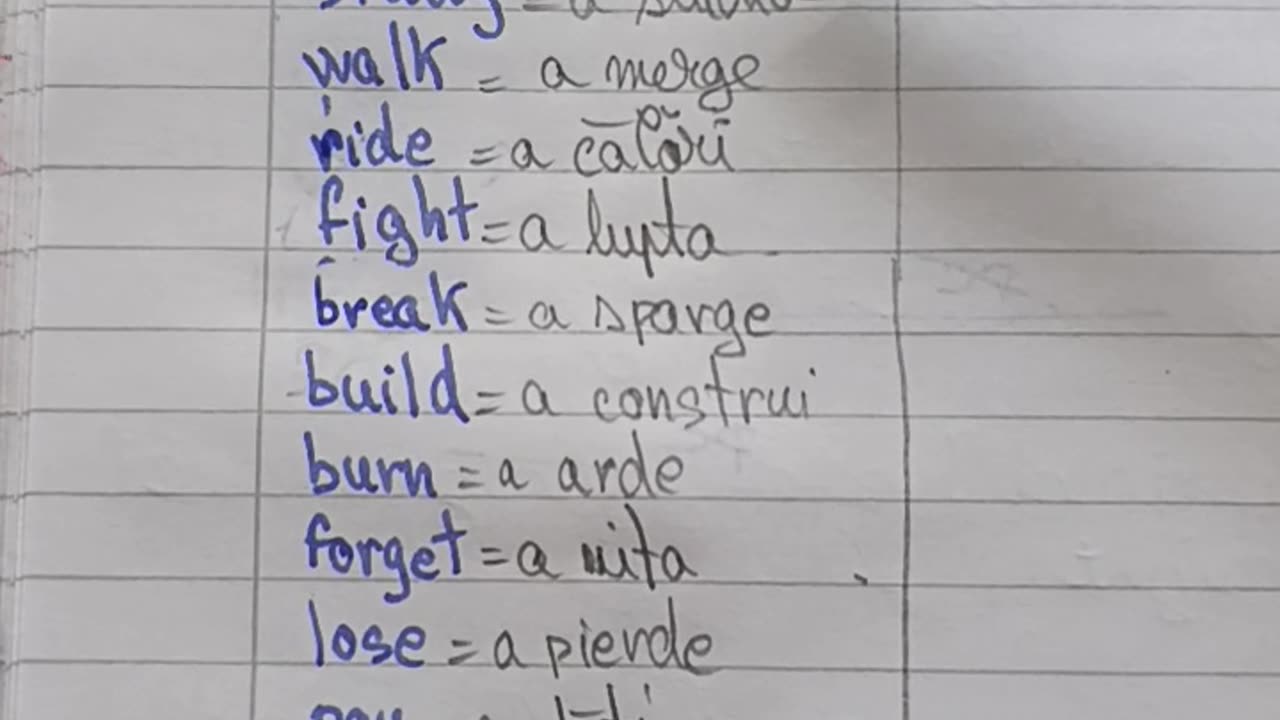 walk = a merge
ride = a călări
fight = a lupta
break = a sparge
build = a construi
burn = a arde
forget = a uita
lose = a pierde